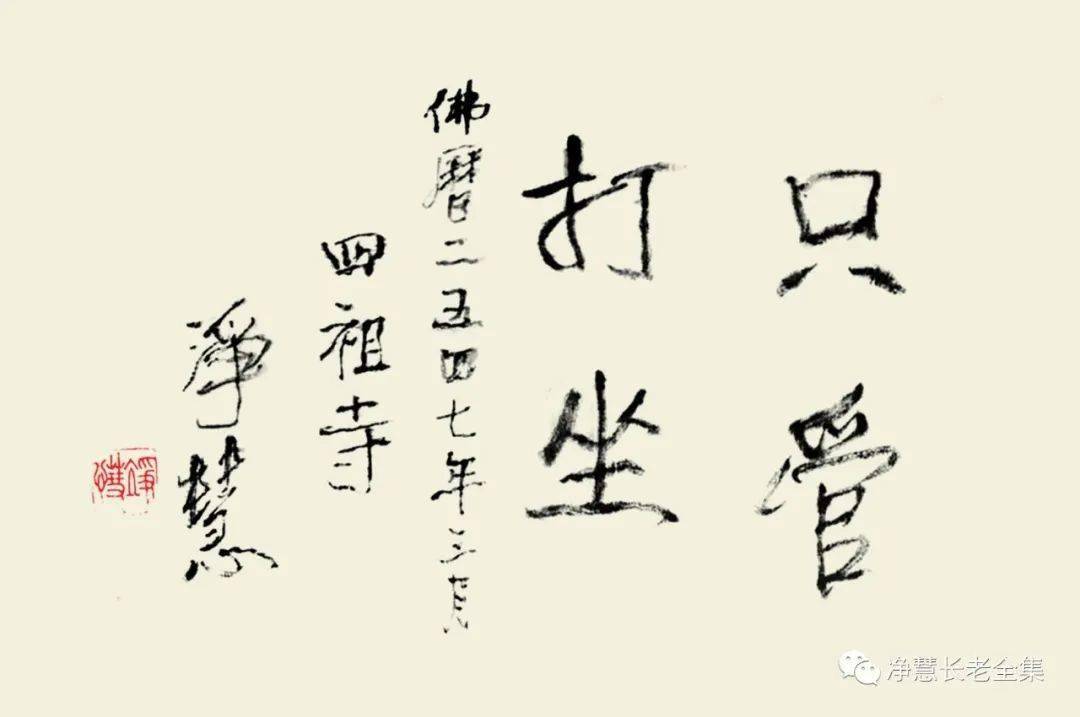 只管
打坐
佛曆二五四七年三月
四祖寺
淨慧
净慧长老全集